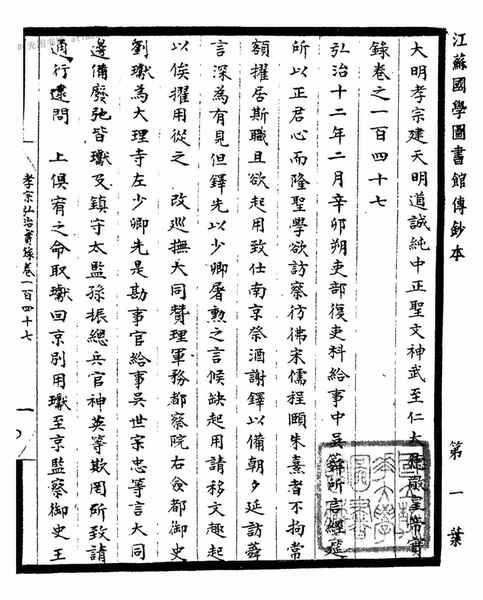 江蘇國學圖書館傳鈔本 第一葉
大明孝宗建天明道誠純中正聖文神武至仁大德敬皇帝實
錄卷之一百四十七
弘治十二年二月辛卯朔吏部復吏科給事中吳蕣所言經筵
所以正君心而隆聖學欲訪察彷彿宋儒程頤朱熹者不拘常
額擢居斯職且欲起用致仕南京祭酒謝鐸以備朝夕延訪蕣
言深為有見但鐸先以少卿屠勲之言候缺起用請移文趣起
以俟擢用從之 改巡撫大同贊理軍務都察院右僉都御史
劉瓛為大理寺左少卿先是勘事官給事吳世宗忠等言大同
邊備廢弛皆瓛及鎮守太監孫振總兵官神英等欺罔所致請
通行逮問 上俱宥之命取瓛回京別用瓛至京監察御史王
孝宗弘治實錄卷一百四十七 一